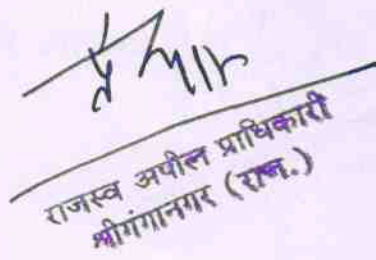 राजस्व अपील प्राधिकारी
श्रीगंगानगर (राज.)